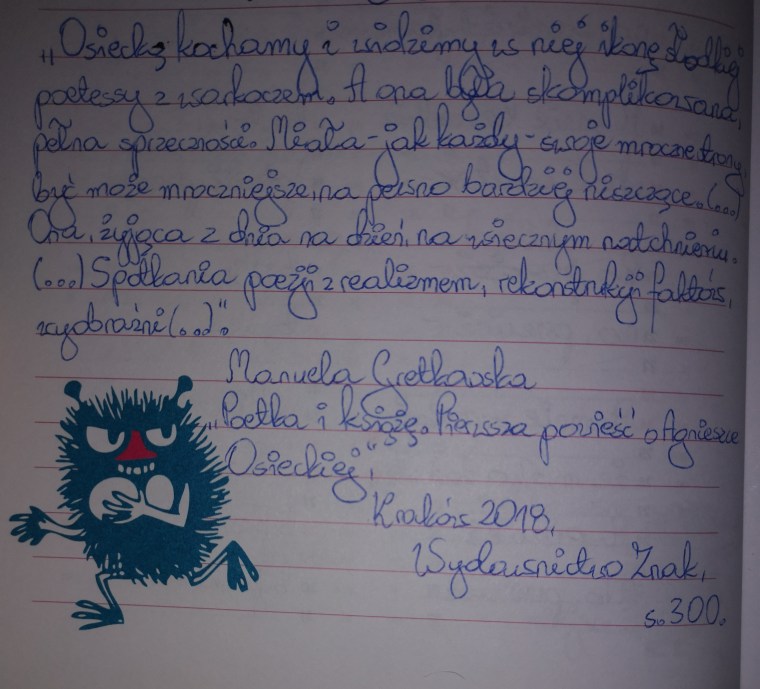 „Osiecką kochamy i widzimy w niej ikonę słodkiej
poetessy z warkoczem. A ona była skomplikowana,
pełna sprzeczności. Miała - jak każdy - swoje mroczne strony,
być może mroczniejsze, na pewno bardziej niszczące. (...)
Ona, żyjąca z dnia na dzień, na wiecznym natchnieniu.
(...) Spotkania poezji z realizmem, rekonstrukcji faktów,
wyobraźni (...)".
Manuela Gretkowska
„Poetka i książę. Pierwsza powieść o Agnieszce
Osieckiej",
Kraków 2018,
Wydawnictwo Znak,
s. 300.